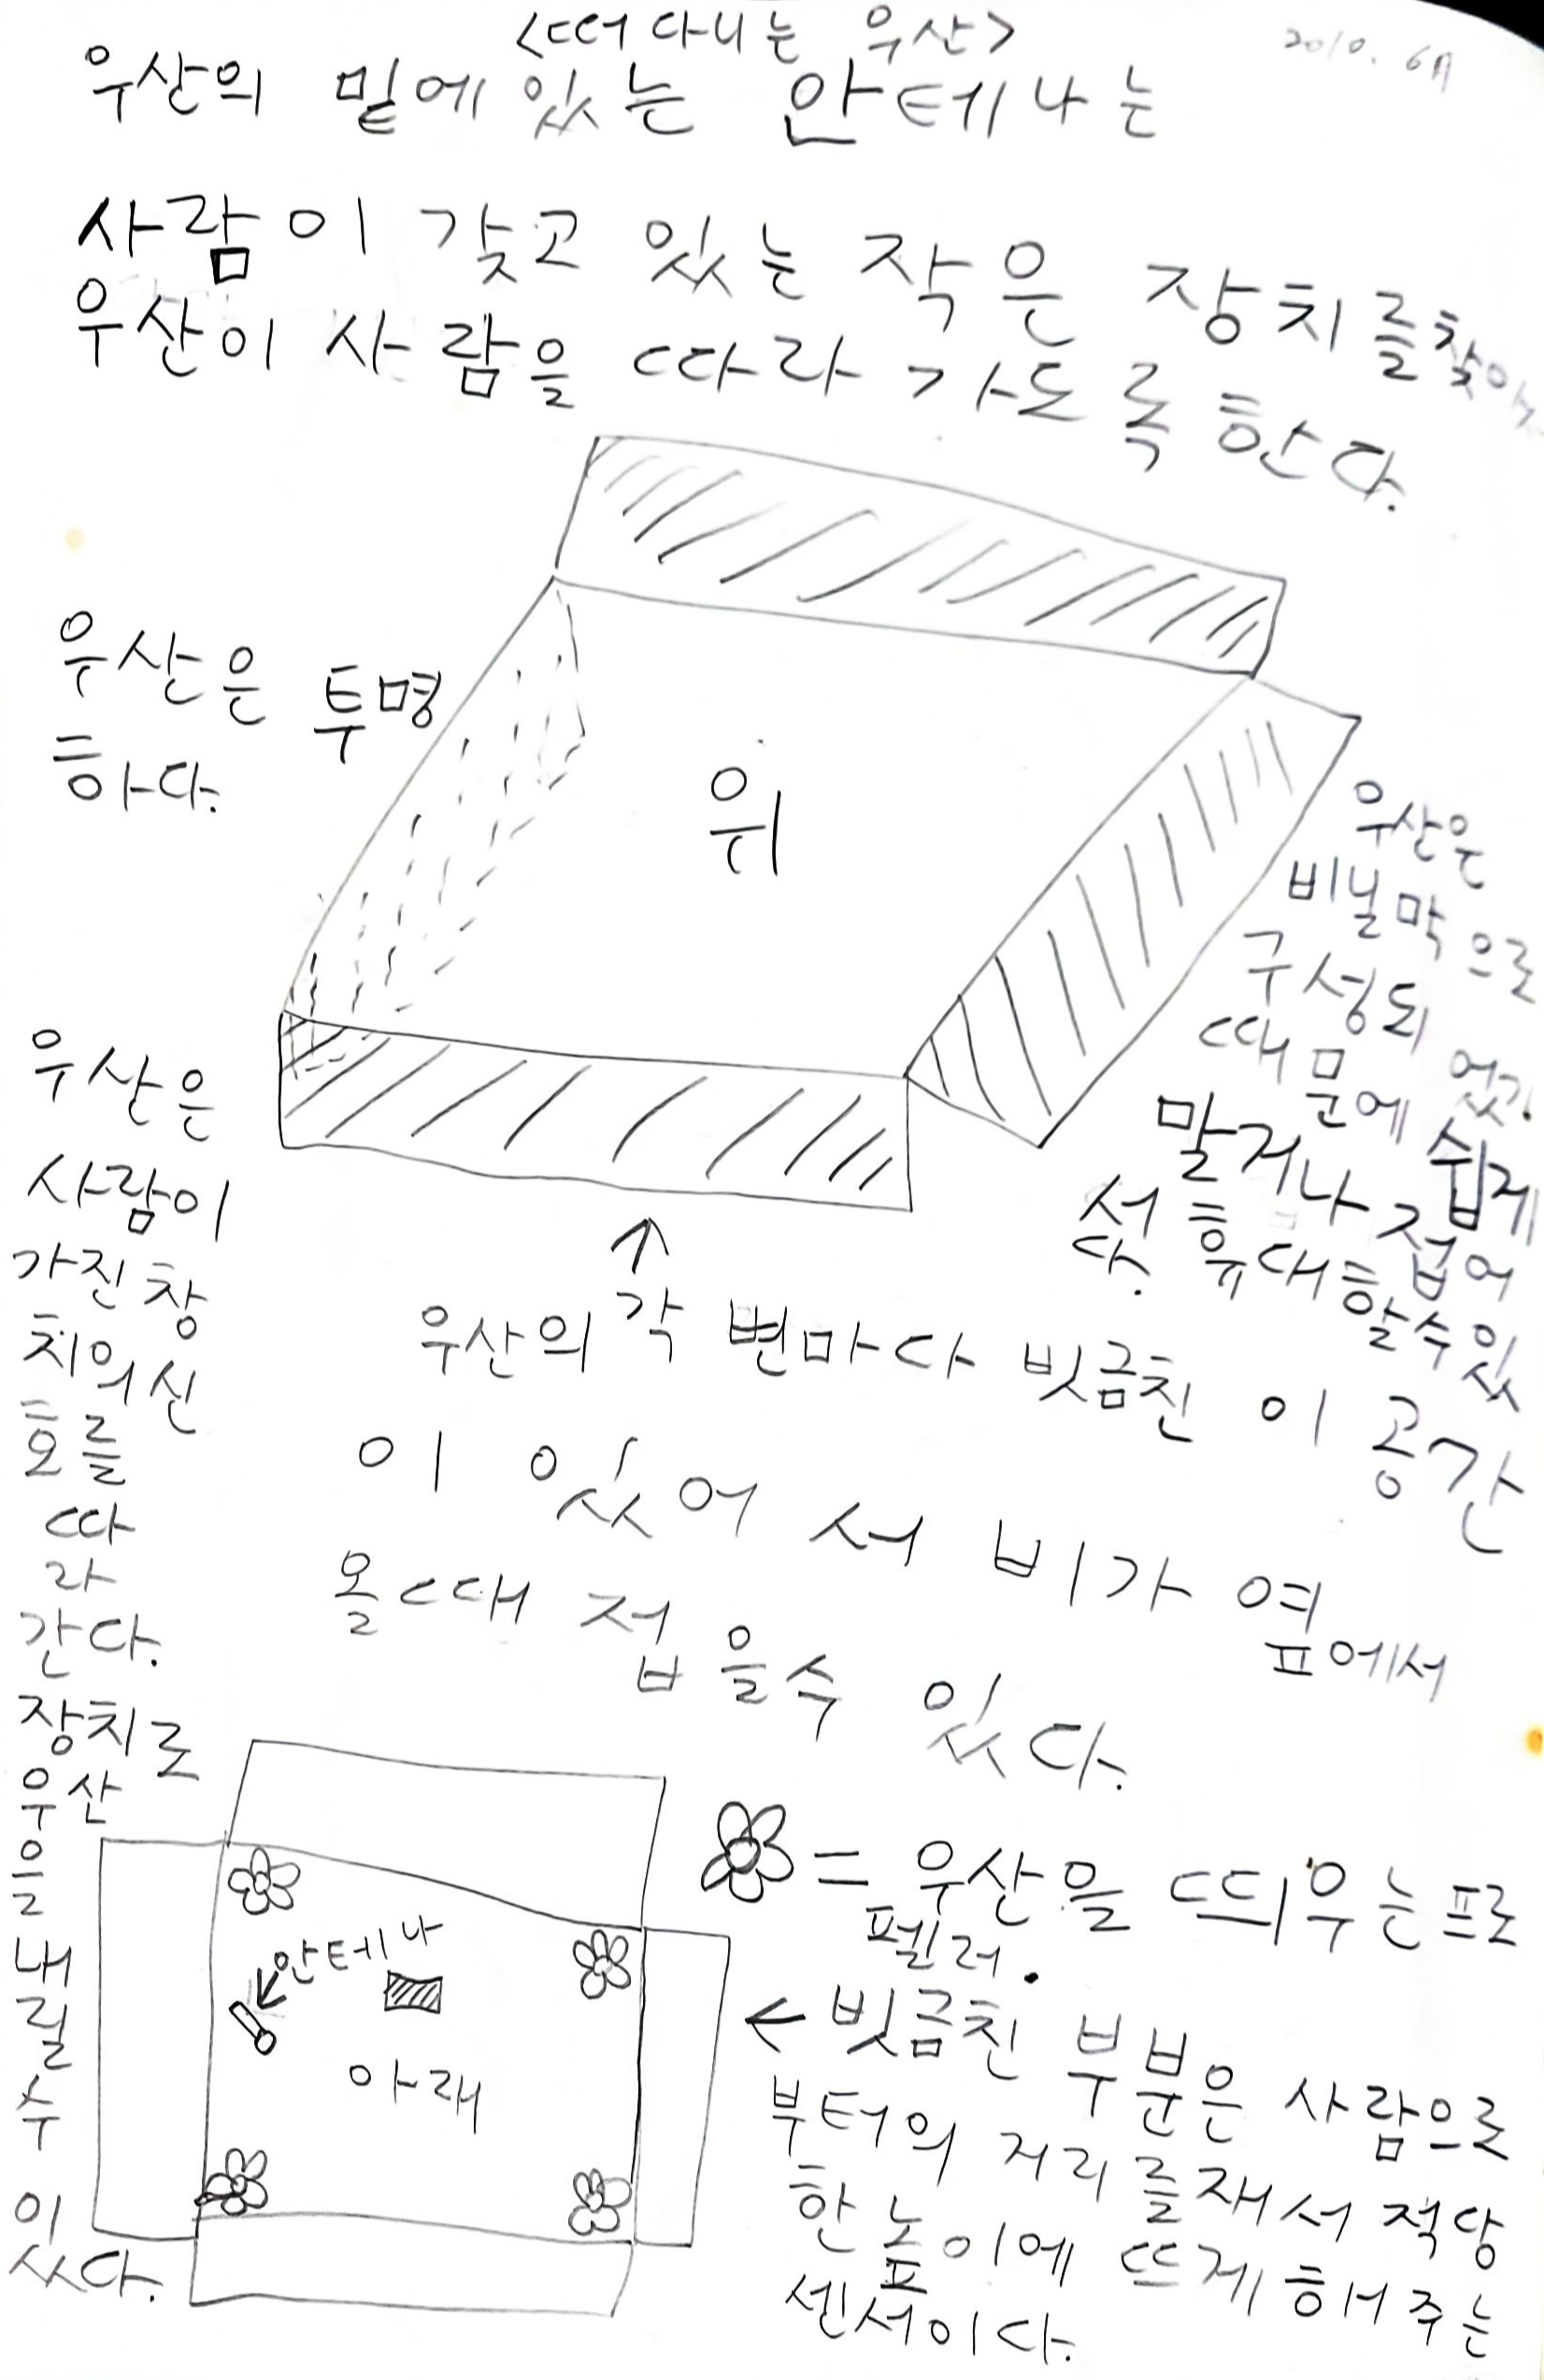 <떠다니는 우산>
2010. 6月
우산의 밑에 있는 안테나는
사람이 갖고 있는 작은 장치를 찾아
우산이 사람을 따라 가도록 한다.
우산은 투명
하다.
위
우산은
비닐막으로
구성되어있기
때문에 쉽게
말거나 접어
서 휴대할수있
다.
우산은
사람이
가진 장
치의 신
호를
따
라
간다.
장치로
우산
을
내
릴
수
이
ㅆ다.
↑
우산의 각 변마다 빗금친 이 공간
이 있어서 비가 옆에서
올때 접을수 있다.
= 우산을 띄우는 프로
펠러.
안테나
아래
← 빗금친 부분은 사람으로
부터의 거리를 재서 적당
한 높이에 뜨게 해주는
센서이다.